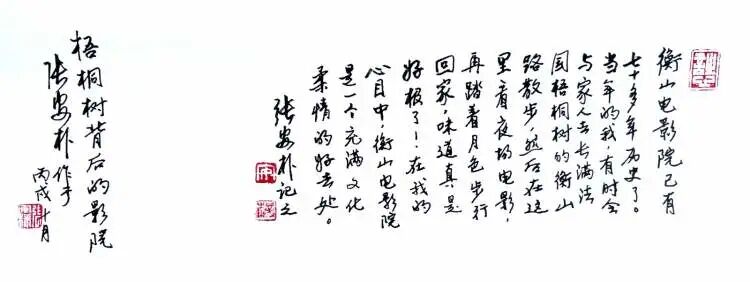 衡山电影院已有
七十多年历史了。
当年的我,有时会
与家人去长满法
国梧桐树的衡山
路散步,然后在这
里看夜场电影,
再踏着月色步行
回家,味道真是
好极了!在我的
心目中,衡山电影院
是一个充满文化
柔情的好去处。
张安朴记之
梧桐树背后的影院
张安朴作于
丙戌十月